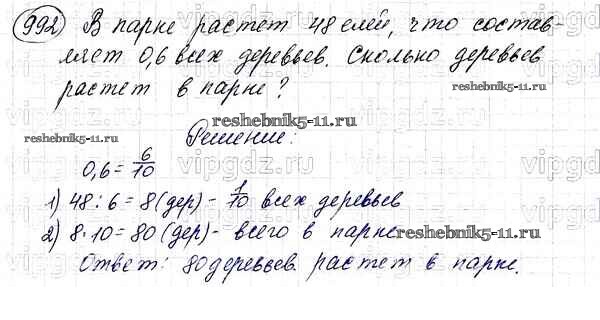 992 В парке растет 48 елей, что состав-
ляет 0,6 всех деревьев. Сколько деревьев
растет в парке?
reshebnik5-11.ru
reshebnik5-11.ru
Решение:
0,6 = 6/10
1) 48 : 6 = 8 (дер) - 1/10 всех деревьев
2) 8·10 = 80 (дер) - всего в парке
reshebnik5-11.ru
Ответ: 80 деревьев растет в парке.